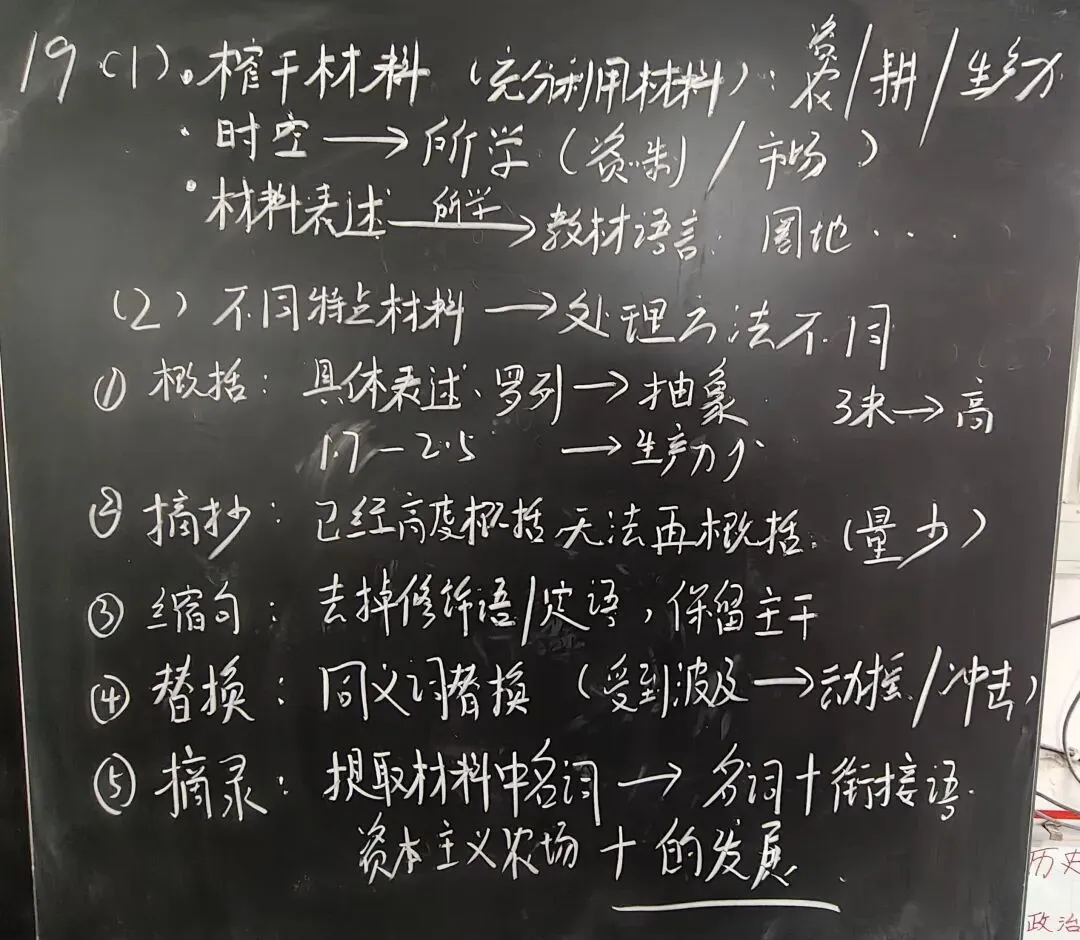 19 (1). 榨干材料 (充分利用材料): 资农/耕/生产力
· 时空 → 所学 (资.制 / 市场)
· 材料表述 所学→ 教材语言: 圈地 · · ·
(2) 不同特点材料 → 处理方法不同
① 概括: 具体表述、罗列 → 抽象 3米 → 高
1.7 — 2.5 → 生产力个
② 摘抄: 已经高度概括无法再概括. (量少)
③ 缩句: 去掉修饰语/定语, 保留主干
④ 替换: 同义词替换 (受到波及 → 动摇/冲击)
⑤ 摘录: 提取材料中名词 → 名词+衔接语.
资本主义农场 + 的发展.
历史
政治